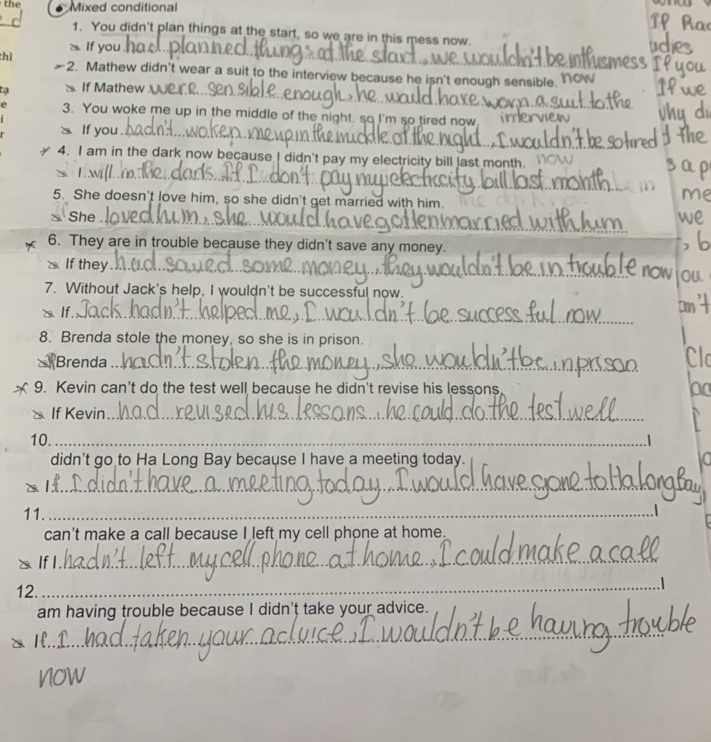 the
Mixed conditional
1. You didn't plan things at the start, so we are in this mess now.
If you had planned things at the start, we wouldn't be in this mess
2. Mathew didn't wear a suit to the interview because he isn't enough sensible. now
If Mathew were sensible enough, he would have worn a suit to the
interview
3. You woke me up in the middle of the night, so I'm so tired now.
If you hadn't woken me up in the middle of the night, I wouldn't be so tired
4. I am in the dark now because I didn't pay my electricity bill last month. now
I will in the dark If I don't pay my electricity bill last month
5. She doesn't love him, so she didn't get married with him.
She loved him, she would have gotten married with him
6. They are in trouble because they didn't save any money.
If they had saved some money, they wouldn't be in trouble now
7. Without Jack's help, I wouldn't be successful now.
If Jack hadn't helped me, I wouldn't be successful now
8. Brenda stole the money, so she is in prison.
Brenda hadn't stolen the money, she wouldn't be in prison
9. Kevin can't do the test well because he didn't revise his lessons.
If Kevin had revised his lessons, he could do the test well
10. I
didn't go to Ha Long Bay because I have a meeting today.
If I didn't have a meeting today, I would have gone to Ha Long Bay
11. I
can't make a call because I left my cell phone at home.
If I hadn't left my cell phone at home, I could make a call
12. I
am having trouble because I didn't take your advice.
If I had taken your advice, I wouldn't be having trouble
now
If you
If we
the
me
we